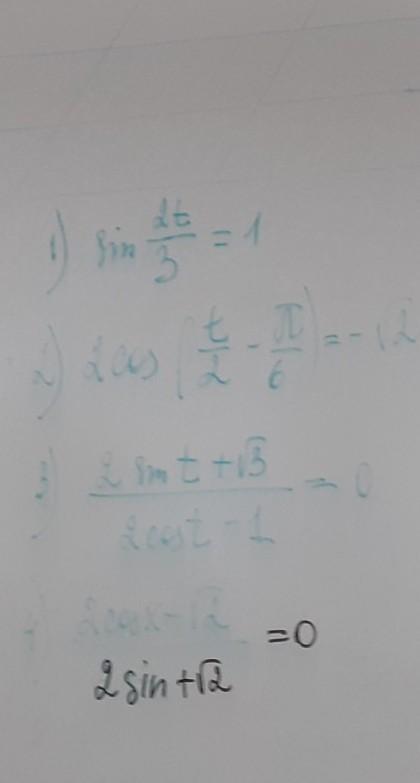 1) sin 2t/3 = 1
2) 2cos (t/2 - π/6) = -√2
3) 2 sin t + √3 / 2cos t - 1 = 0
4) 2cos x - √2 / 2 sin + √2 = 0